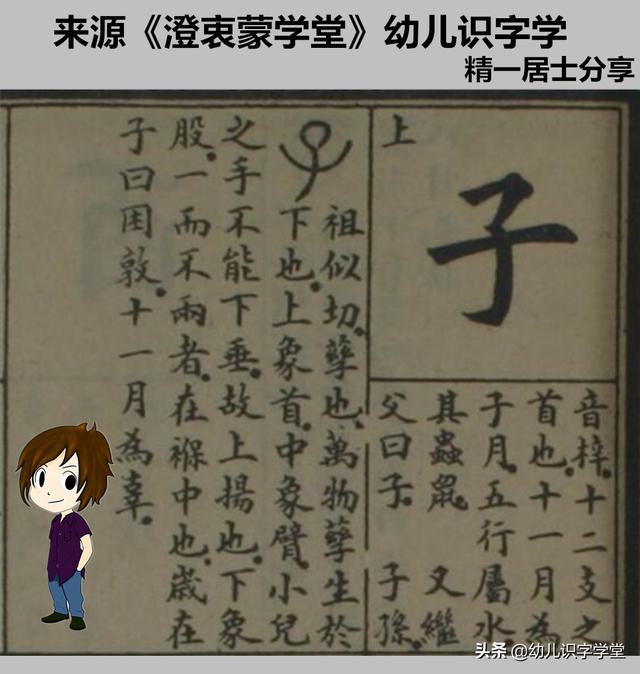 来源《澄衷蒙学堂》幼儿识字学
精一居士分享
上
子
音梓。十二支之
首也。十一月為
子月。五行屬水。
其蟲鼠。 又繼
父曰子。 子孫。
祖似切。孽也。萬物孽生於
下也。上象首。中象臂。小兒
之手不能下垂。故上揚也。下象
股。一而不兩者。在褓中也。歲在
子曰困敦。十一月為辜。
头条 @幼儿识字学堂